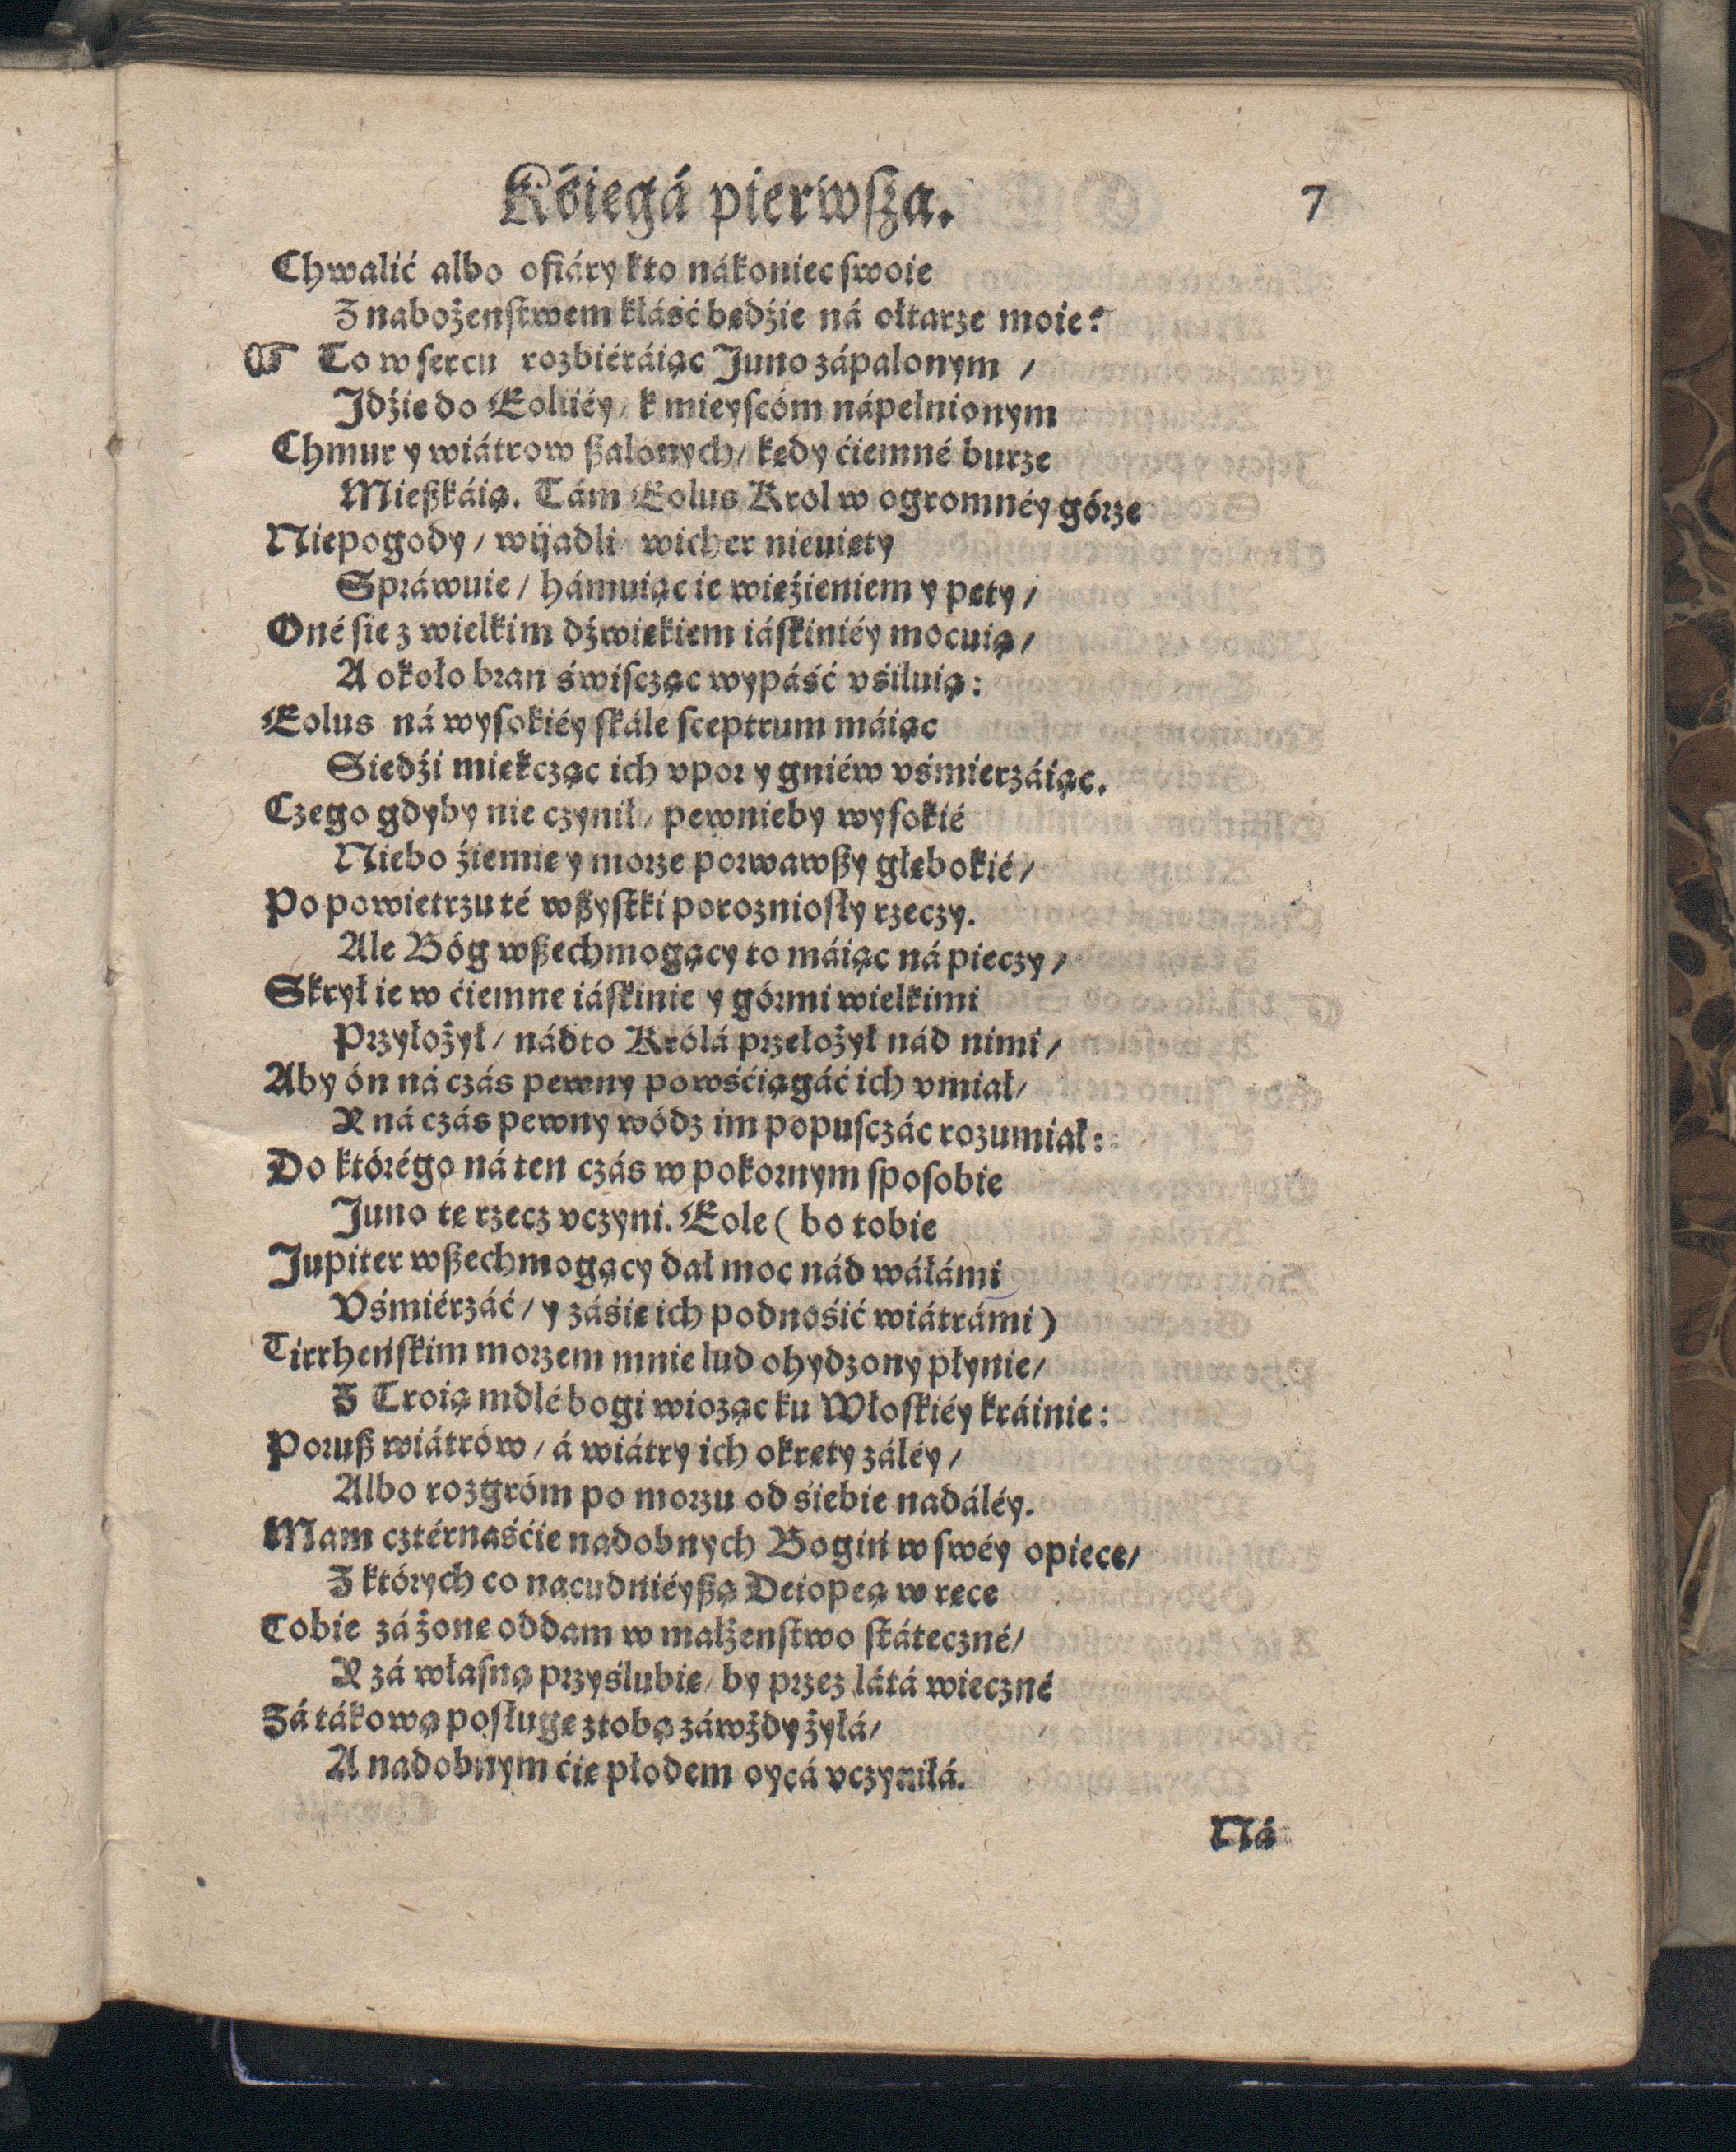 Kśięgá pierwsza. 7
Chwalić albo ofiáry kto nákoniec swoie
Z nabożenstwem kłáść będźie ná ołtarze moie?
☞ To w sercu rozbiéráiąc Juno zápalonym /
Jdźie do Eoliiéy / k mieyscóm nápełnionym
Chmur y wiátrow ßalonych / kędy ćiemné burze
Mießkáią. Tám Eolus Krol w ogromnéy górze
Niepogody / wijadli wicher nieuięty
Spráwuie / hámuiąc ie więźieniem y pęty /
Oné się z wielkim dźwiękiem iáskiniéy mocuią /
A około bran świscząc wypáść vśiłuią:
Eolus ná wysokiéy skále sceptrum máiąc
Siedźi miękcząc ich vpor y gniéw vśmierzáiąc.
Czego gdyby nie czynił / pewnieby wysokié
Niebo źiemię y morze porwawßy głębokié /
Po powietrzu té wßystki porozniosły rzeczy.
Ale Bóg wßechmogący to máiąc ná pieczy /
Skrył ie w ćiemne iáskinie y górmi wielkimi
Przyłożył / nádto Królá przełożył nád nimi /
Aby ón ná czás pewny powśćiągáć ich vmiał /
Y ná czás pewny wódz im popusczác rozumiał:
Do którégo ná ten czás w pokornym sposobie
Juno tę rzecz vczyni. Eole ( bo tobie
Jupiter wßechmogący dał moc nád wáłámi
Vśmiérzáć / y záśię ich podnośić wiátrámi )
Tirrheńskim morzem mnie lud ohydzony płynie /
Z Troią mdłé bogi wioząc ku Włoskiéy kráinie:
Poruß wiátrów / á wiátry ich okręty záléy /
Albo rozgróm po morzu od siebie nadáléy.
Mam cztérnaśćie nadobnych Bogiń w swéy opiece /
Z których co nacudniéyßą Deiopeą w ręce
Tobie zá żonę oddam w małżenstwo státeczné /
Y zá własną przyślubię / by przez látá wieczné
Zá tákową posługę z tobą záwżdy żyłá /
A nadobnym ćię płodem oycá vczyniłá.
Ná